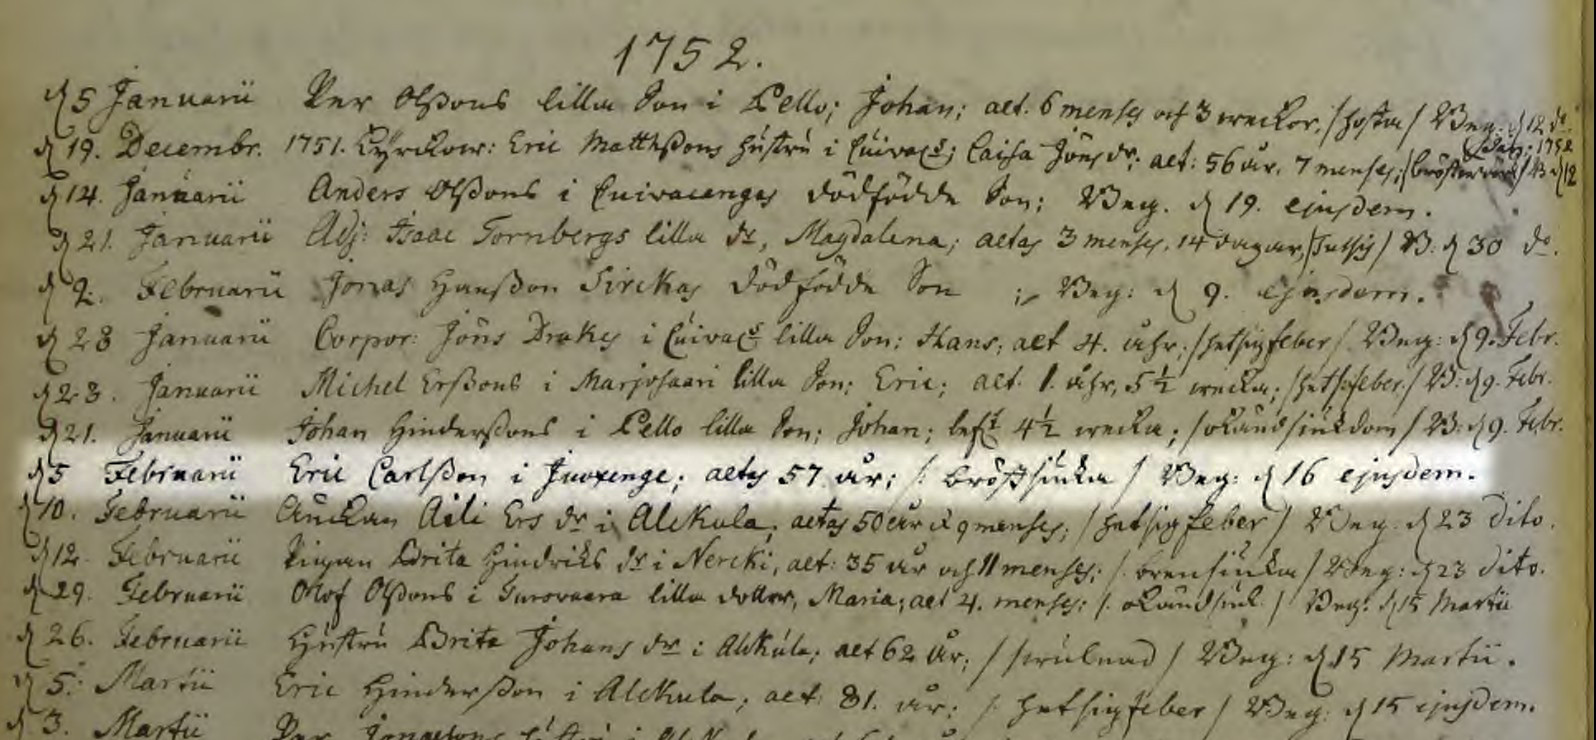 1752.
d 5 Januarii Per Olßons lilla Son i Pello; Johan; aet. 6 menses och 3 weckor. /hosta/ Beg: d 12 do.
d 19. Decembr. 1751. Kyrckow: Eric Matthßons hustru i Cuivacg; Caisa Jöns dr. aet: 56 år. 7 menses; /bröstwärk/ B d 12 Jan: 1752
d 14. Januarii Anders Olßons i Cuivacanges dödfödde Son; Beg. d 19. ejusdem.
d 21. Januarii Adj: Isaac Fornbergs lilla dr, Magdalena; aetas 3 menses, 14 dagar, B: d 30 do.
d 2. Februarii Jonas Hanßon Sirckas dödfödde Son ; Beg: d 9. ejusdem.
d 23 Januarii Corpor: Jöns Drakes i lilla Son; Hans; aet 4. åhr; /hetsigfeber/ Beg: d 9. Febr.
d 23. Januarii Michel Erßons i Marjosaari lilla Son; Eric; aet. 1. åhr, 5 1/2 wecka; /hetsigfeber/ B: d 9. Febr.
d 21. Januarii Johan Hinderßons i Pello lilla Son; Johan; left 4 1/2 wecka; /okänd siukdom/ B: d 9. Febr.
d 5 Februarii Eric Carlßon i Juoxenge; aetas 57 år; /: bröstsiuka / Beg: d 16 ejusdem.
d 10. Februarii Änckan Aili Ers dr i Alckula; aetas 50 år & 9 menses; /hetsig feber/ Beg: d 23 dito.
d 12. Februarii Pigan Brita Hindriks dr i Nercki, aet: 35 år och 11 menses; /: brensiuka / Beg: d 23 dito.
d 29. Februarii Olof Olßons i Turovaara lilla dotter, Maria; aet 4. menses; /: okänd siuk. / Beg: d 15 Martii
d 26. Februarii Hustru Brita Johans dr i Alckula; aet 62 år; / swulnad / Beg: d 15 Martii.
d 5. Martii Eric Hinderßon i Alckula; aet. 81. år; /: hetsigfeber / Beg: d 15 ejusdem.
d 3. Martii Per